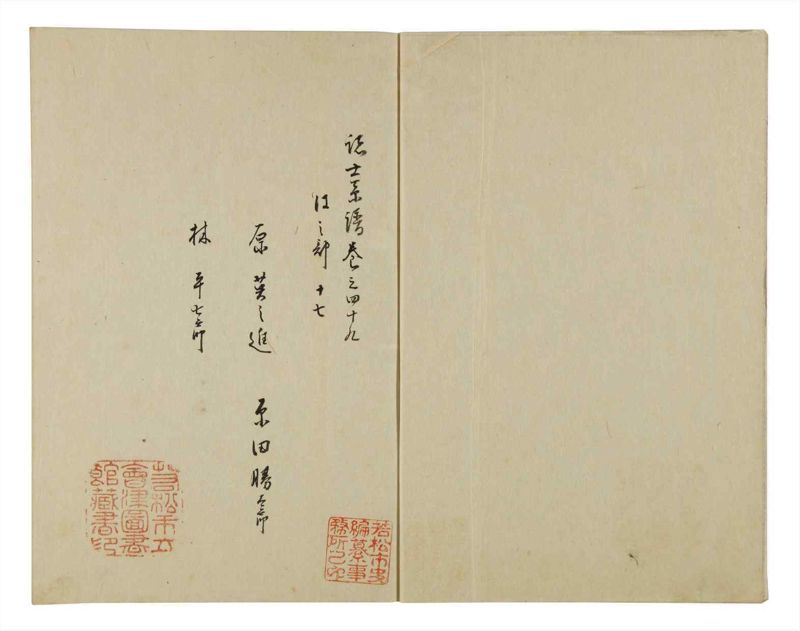 諸士系譜巻之四十九
はノ部 十七
原 英之進 原田勝五郎
林 平七郎
若松市史編纂事務所之印
若松市立會津圖書館藏書印